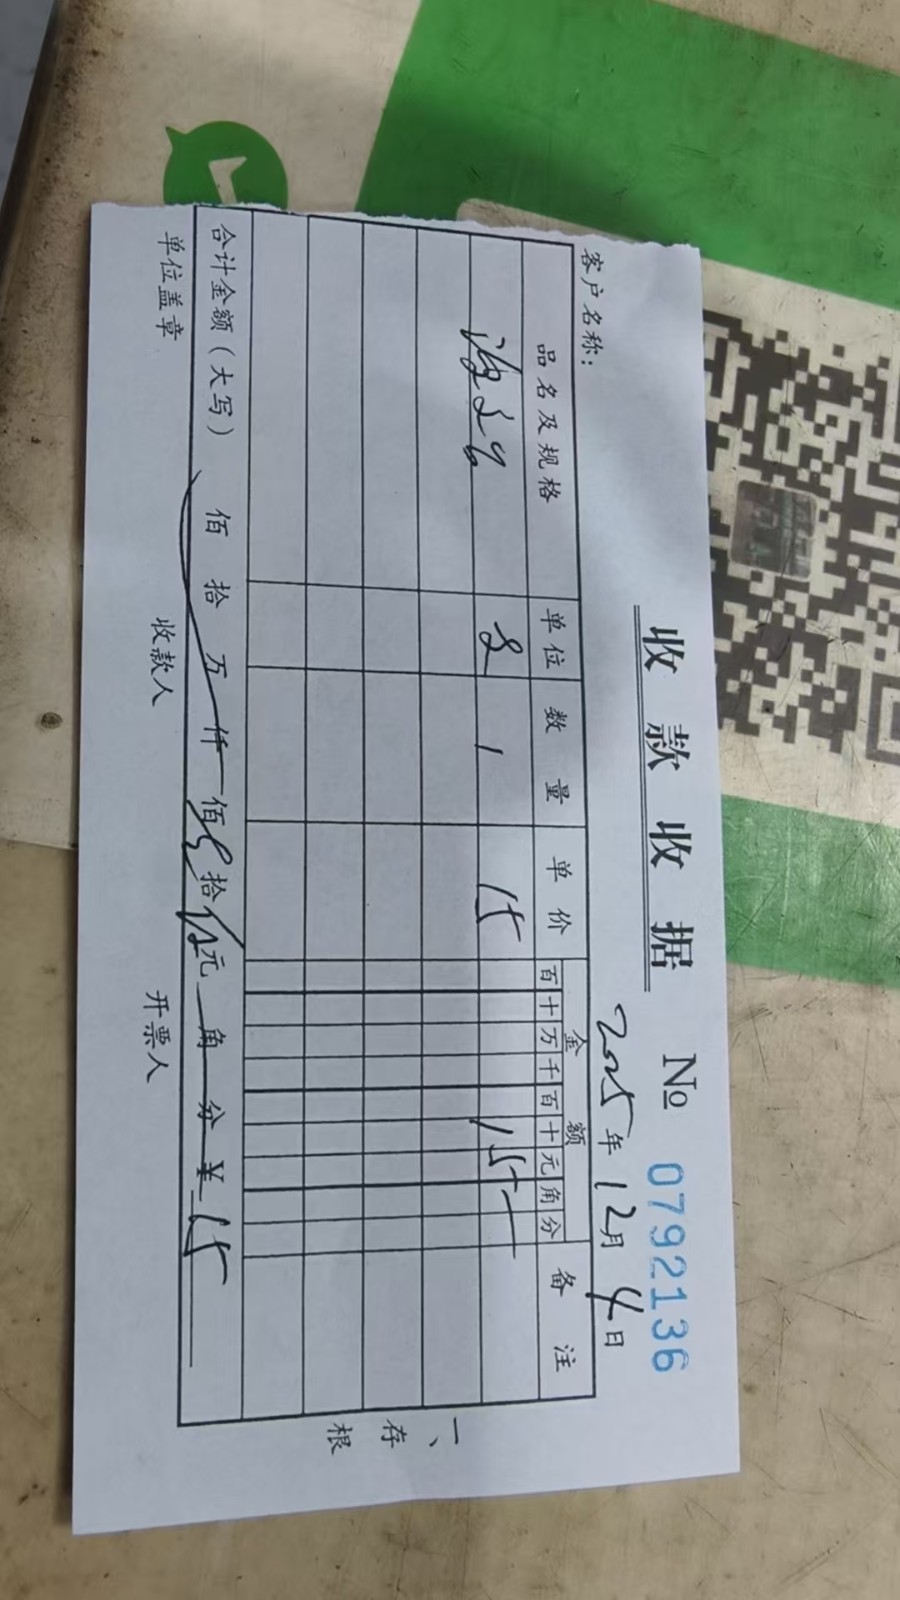 收款收据 № 0792136
2025年12月4日
客户名称：
品名及规格 单位 数量 单价 金额 备注
百 十 万 千 百 十 元 角 分
1 15 15
合计金额（大写） 佰 拾 万 仟 佰 拾 伍元 角 分 ¥ 15
单位盖章 收款人 开票人
一、存根